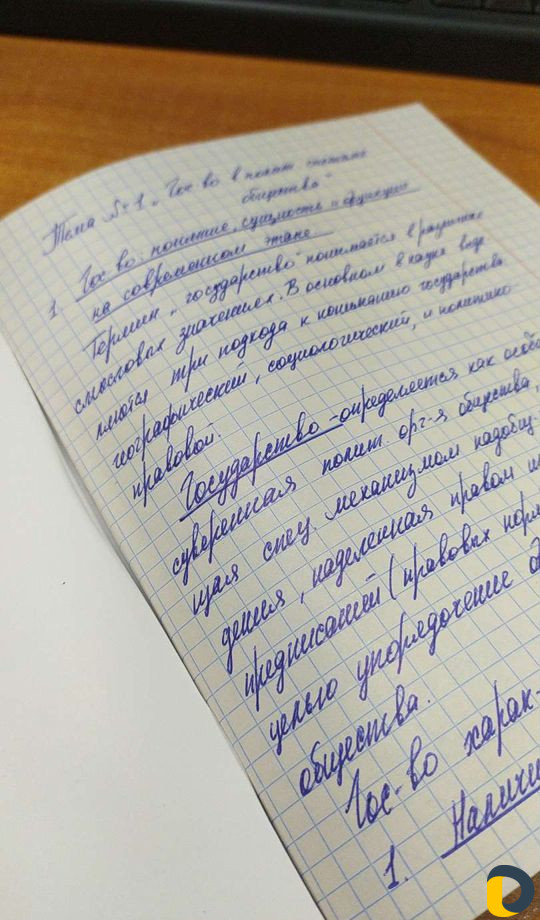 Тема №1 „Гос-во в полит. системе
общества"
1. Гос-во: понятие, сущность и функции
на современном этапе.
Термин „государство" понимается в различных
смысловых значениях. В основном в науке выде-
ляются три подхода к пониманию государства
географический, социологический, и политико-
правовой.
Государство - определяется как особая
суверенная полит. орг-я общества,
щая спец. механизмом
дения, наделенная правом
предписаний (правовых норм
целью упорядочение
общества.
Гос-во харак-
1. Наличи